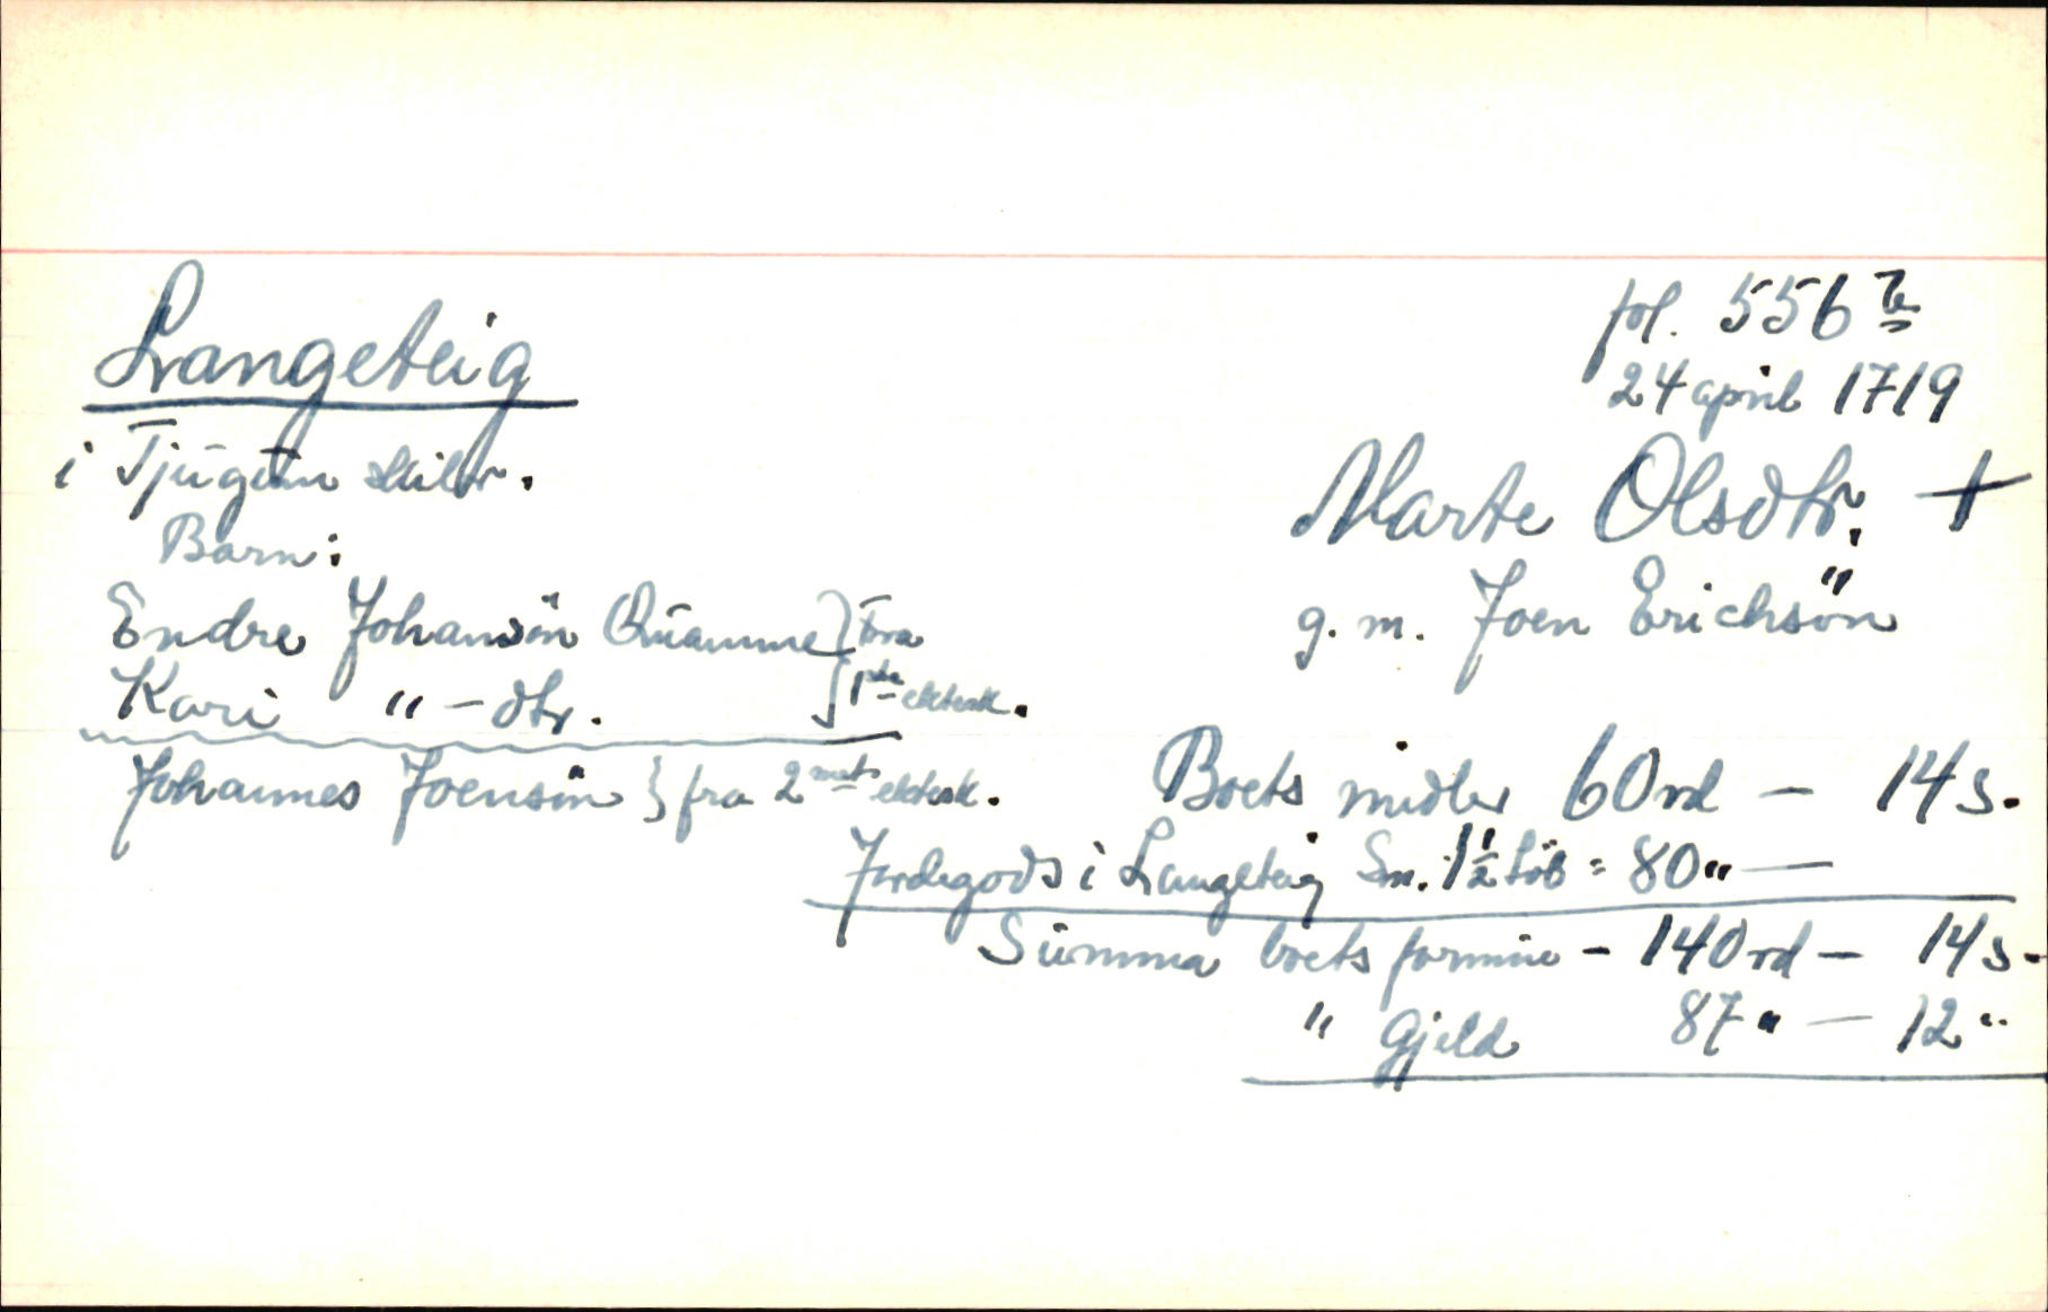 Langeteig
fol. 556 b
24 april 1719
i Tjugum skibr.
Marte Olsdtr. +
g. m. Joen Erichsön
Barn:
Endre Johansön Quamme } Fra
Kari " - dtr. } 1ste ektesk.
Johannes Joensön } fra 2net ektesk.
Boets midler 60 rd - 14 s.
Jordegods i Langeteig Sm. 1 1/2 Löb = 80 " -
Summa boets formue - 140 rd - 14 s -
" Gjeld 87 " - 12 "